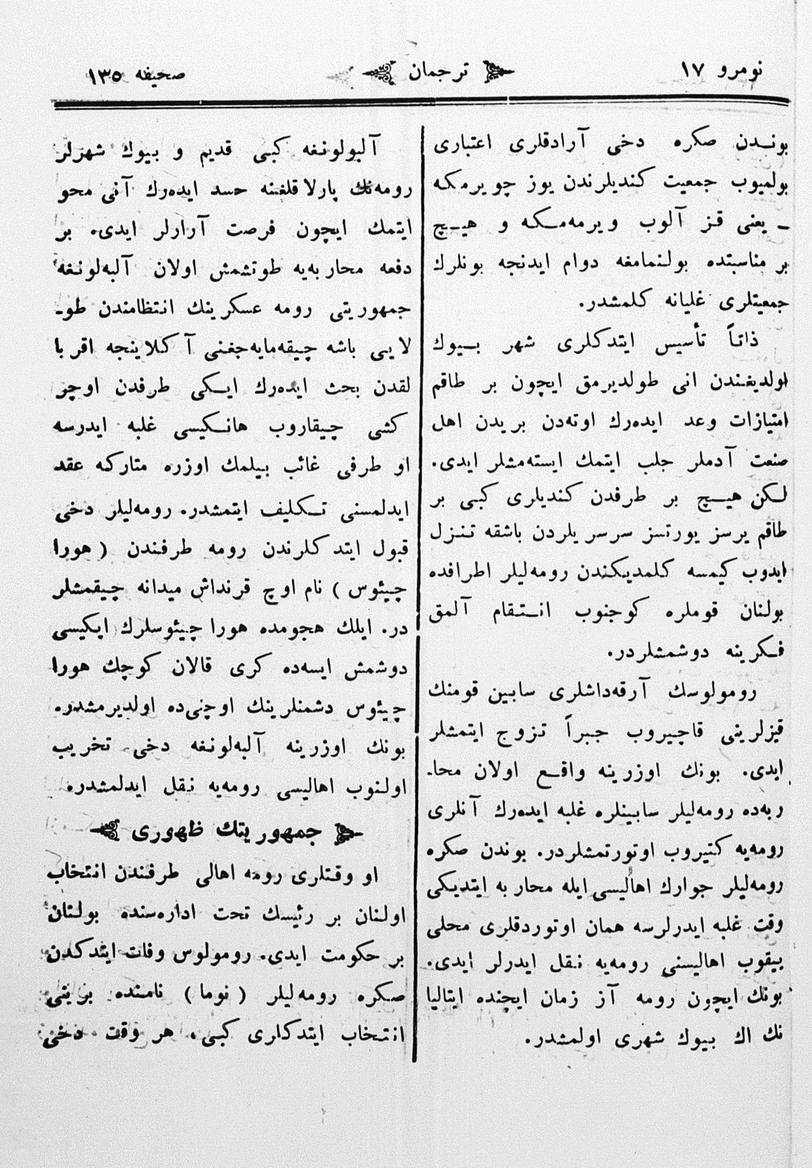 نومرو ١٧
ترجمان
صحيفه ١٣٥
بوندن صكره دخى آرادقلرى اعتبارى
بولميوب جمعيت كنديلرندن يوز چويرمكه
ـ يعنى قز آلوب ويرمه‌مكه و هيچ
بر مناسبتده بولنمامغه دوام ايدنجه بونلرك
جمعيتلرى غليانه كلمشدر.
ذاتاً تأسيس ايتدكلرى شهر بيوك
اولديغندن انى طولديرمق ايچون بر طاقم
امتيازات وعد ايده‌رك اوته‌دن بريدن اهل
صنعت آدملر جلب ايتمك ايسته‌مشلر ايدى.
لكن هيچ بر طرفدن كنديلرى كبى بر
طاقم يرسز يورتسز سرسريلردن باشقه تنزل
ايدوب كيمسه كلمديكندن رومه‌ليلر اطرافده
بولنان قوملره كوجنوب انتقام آلمق
فكرينه دوشمشلردر.
رومولوسك آرقه‌داشلرى سابين قومنك
قيزلرينى قاچيروب جبراً تزوج ايتمشلر
ايدى. بونك اوزرينه واقع اولان محا-
ربه‌ده رومه‌ليلر سابينلره غلبه ايده‌رك آنلرى
رومه‌يه كتيروب اوتورتمشلردر. بوندن صكره
رومه‌ليلر جوارك اهاليسى ايله محاربه ايتديكى
وقت غلبه ايدرلرسه همان اوتوردقلرى محلى
ييقوب اهاليسنى رومه‌يه نقل ايدرلر ايدى.
بونك ايچون رومه آز زمان ايچنده ايتاليا
نك اك بيوك شهرى اولمشدر.
آلبولونغه كبى قديم و بيوك شهرلر
رومه‌نك پارلاقلغنه حسد ايده‌رك آنى محو
ايتمك ايچون فرصت آرارلر ايدى. بر
دفعه محاربه‌يه طوتشمش اولان آلبه‌لونغه
جمهوريتى رومه عسكرينك انتظامندن طو-
لايى باشه چيقه‌مايه‌جغنى آكلاينجه اقربا
لقدن بحث ايده‌رك ايكى طرفدن اوچر
كشى چيقاروب هانكيسى غلبه ايدرسه
او طرفى غائب بيلمك اوزره متاركه عقد
ايدلمسنى تكليف ايتمشدر. رومه‌ليلر دخى
قبول ايتدكلرندن رومه طرفندن ( هورا
چيئوس ) نام اوچ قرنداش ميدانه چيقمشلر
در. ايلك هجومده هوراچيئوسلرك ايكيسى
دوشمش ايسه‌ده كرى قالان كوچك هورا
چيئوس دشمنلرينك اوچنى‌ده اولديرمشدر.
بونك اوزرينه آلبه‌لونغه دخى تخريب
اولنوب اهاليسى رومه‌يه نقل ايدلمشدر.
جمهوريتك ظهورى
او وقتلرى رومه اهالى طرفندن انتخاب
اولنان بر رئيسك تحت اداره‌سنده بولنان
بر حكومت ايدى. رومولوس وفات ايتدكدن
صكره رومه‌ليلر ( نوما ) نامنده برينى
انتخاب ايتدكلرى كبى، هر وقت دخى